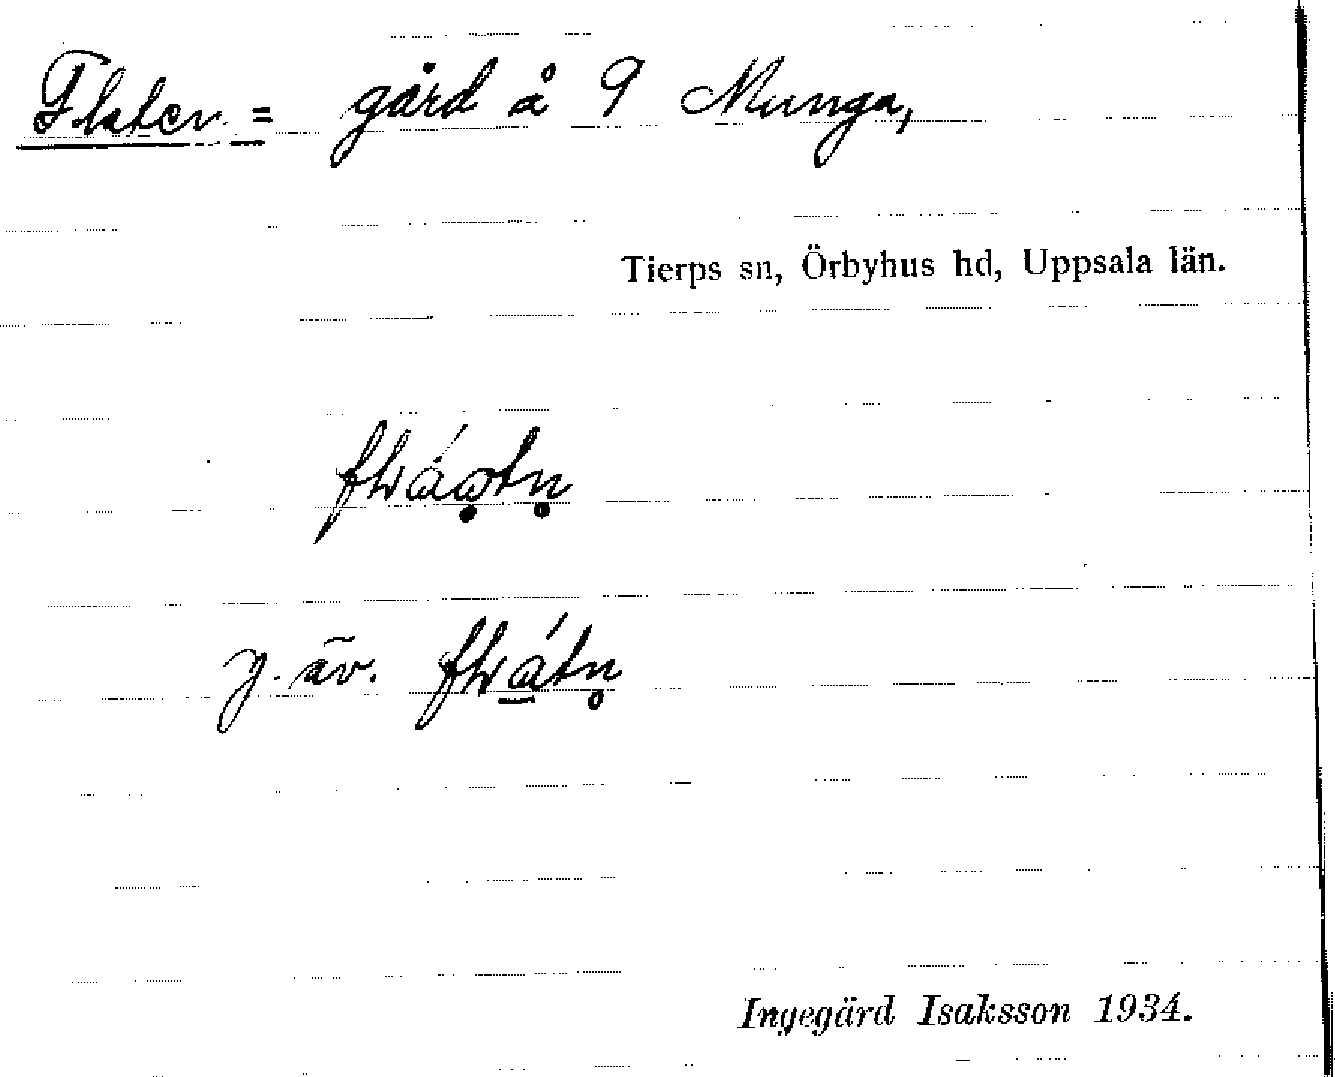 Flaten = gård å 9 Munga,
Tierps sn, Örbyhus hd, Uppsala län.
y. äv.
Ingegärd Isaksson 1934.